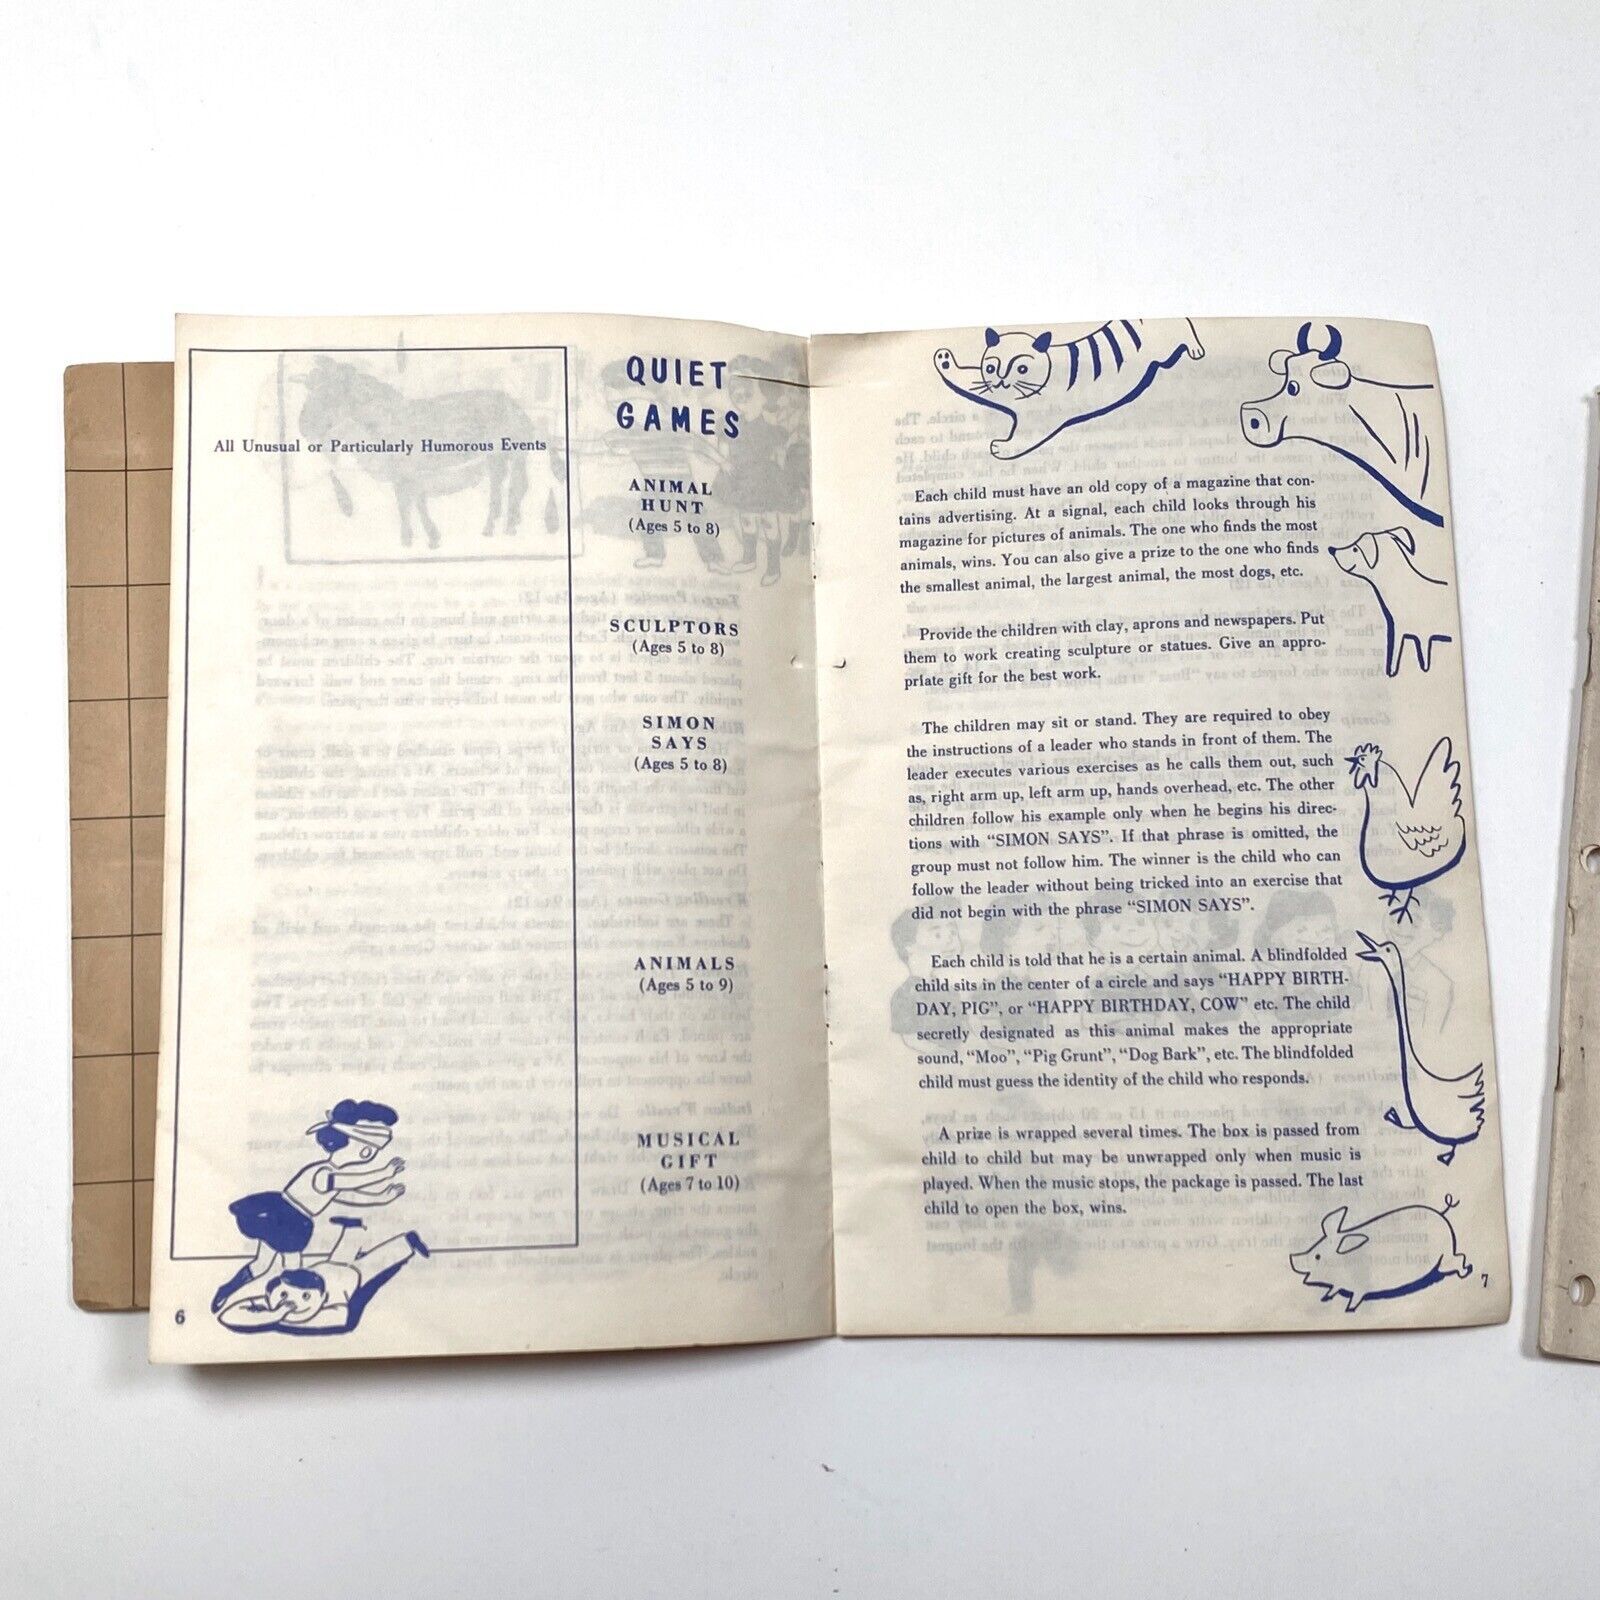 All Unusual or Particularly Humorous Events
QUIET
GAMES
ANIMAL
HUNT
(Ages 5 to 8)
SCULPTORS
(Ages 5 to 8)
SIMON
SAYS
(Ages 5 to 8)
ANIMALS
(Ages 5 to 9)
MUSICAL
GIFT
(Ages 7 to 10)
6
Each child must have an old copy of a magazine that con-
tains advertising. At a signal, each child looks through his
magazine for pictures of animals. The one who finds the most
animals, wins. You can also give a prize to the one who finds
the smallest animal, the largest animal, the most dogs, etc.
Provide the children with clay, aprons and newspapers. Put
them to work creating sculpture or statues. Give an appro-
priate gift for the best work.
The children may sit or stand. They are required to obey
the instructions of a leader who stands in front of them. The
leader executes various exercises as he calls them out, such
as, right arm up, left arm up, hands overhead, etc. The other
children follow his example only when he begins his direc-
tions with "SIMON SAYS". If that phrase is omitted, the
group must not follow him. The winner is the child who can
follow the leader without being tricked into an exercise that
did not begin with the phrase "SIMON SAYS".
Each child is told that he is a certain animal. A blindfolded
child sits in the center of a circle and says "HAPPY BIRTH-
DAY, PIG", or "HAPPY BIRTHDAY, COW" etc. The child
secretly designated as this animal makes the appropriate
sound, "Moo", "Pig Grunt", "Dog Bark", etc. The blindfolded
child must guess the identity of the child who responds.
A prize is wrapped several times. The box is passed from
child to child but may be unwrapped only when music is
played. When the music stops, the package is passed. The last
child to open the box, wins.
7